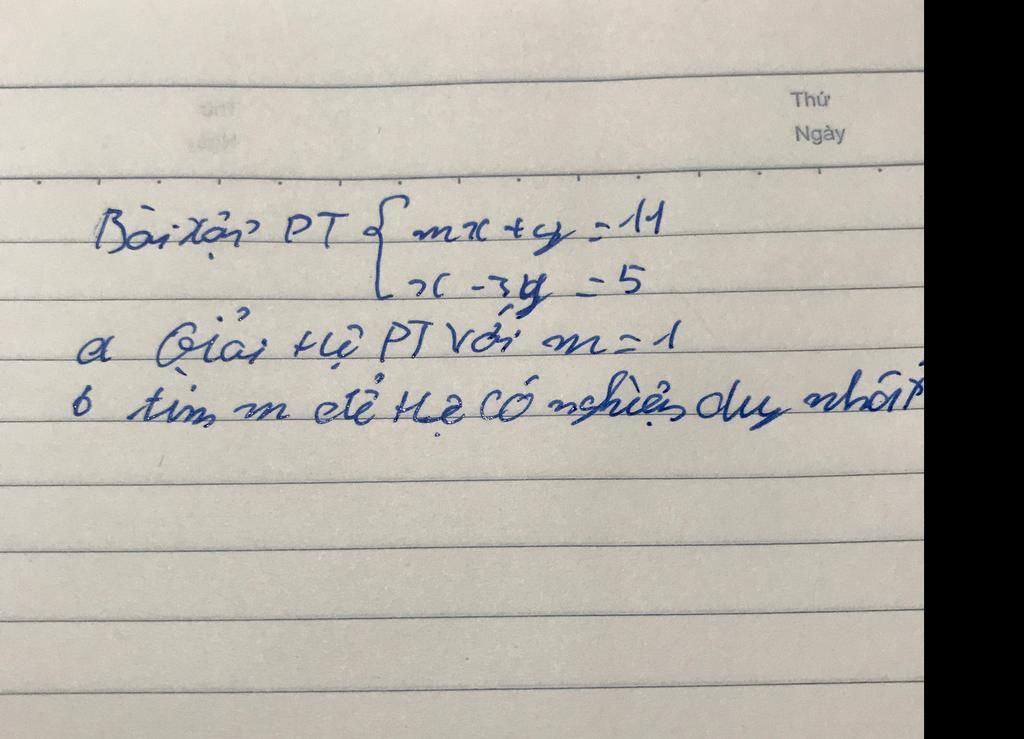 Thứ
Ngày
Bài tập PT { mx + y = 11
x - 3y = 5
a Giải Hệ PT Với m = 1
b tìm m để Hệ có nghiệm duy nhất